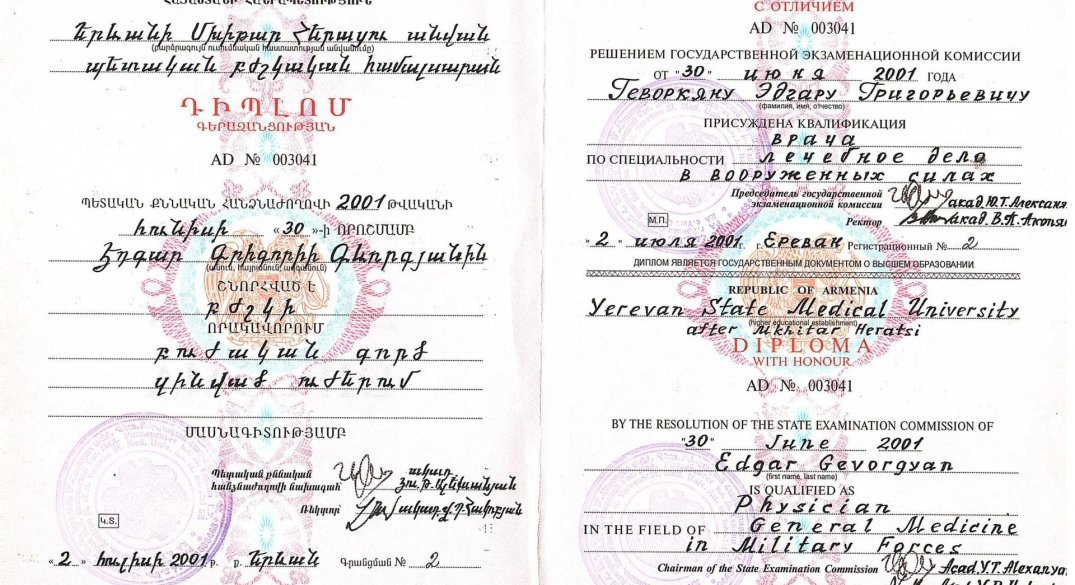 ՀԱՅԱՍՏԱՆԻ ՀԱՆՐԱՊԵՏՈՒԹՅՈՒՆ
Երևանի Մխիթար Հերացու անվան
(բարձրագույն ուսումնական հաստատության անվանումը)
պետական բժշկական համալսարան
ԴԻՊԼՈՄ
ԳԵՐԱԶԱՆՑՈՒԹՅԱՆ
AD № 003041
ՊԵՏԱԿԱՆ ՔՆՆԱԿԱՆ ՀԱՆՁՆԱԺՈՂՈՎԻ 2001 ԹՎԱԿԱՆԻ
հունիսի «30»-ի ՈՐՈՇՄԱՄԲ
Էդգար Գրիգորիի Գևորգյանին
(անուն, հայրանուն, ազգանուն)
ՇՆՈՐՀՎԱԾ Է
բժշկի
ՈՐԱԿԱՎՈՐՈՒՄ
բուժական գործ
զինված ուժերում
ՄԱՍՆԱԳԻՏՈՒԹՅԱՄԲ
Պետական քննական
հանձնաժողովի նախագահ ակադ.
Յու.Թ.Ալեքսանյան
Ռեկտոր ակադ.Վ.Պ.Հակոբյան
Կ.Տ.
«2» հուլիսի 2001 թ. ք. Երևան Գրանցման № 2
С ОТЛИЧИЕМ
AD № 003041
РЕШЕНИЕМ ГОСУДАРСТВЕННОЙ ЭКЗАМЕНАЦИОННОЙ КОМИССИИ
ОТ "30" июня 2001 ГОДА
Геворкяну Эдгару Григорьевичу
(фамилия, имя, отчество)
ПРИСУЖДЕНА КВАЛИФИКАЦИЯ
врача
ПО СПЕЦИАЛЬНОСТИ лечебное дело
в вооруженных силах
Председатель государственной
экзаменационной комиссии акад.Ю.Т.Алексанян
М.П.
Ректор акад.В.П.Акопян
"2" июля 2001 г. г. Ереван Регистрационный № 2
ДИПЛОМ ЯВЛЯЕТСЯ ГОСУДАРСТВЕННЫМ ДОКУМЕНТОМ О ВЫСШЕМ ОБРАЗОВАНИИ
REPUBLIC OF ARMENIA
Yerevan State Medical University
(higher educational establishment)
after Mkhitar Heratsi
DIPLOMA
WITH HONOUR
AD № 003041
BY THE RESOLUTION OF THE STATE EXAMINATION COMMISSION OF
"30" June 2001
Edgar Gevorgyan
(first name, last name)
IS QUALIFIED AS
Physician
IN THE FIELD OF General Medicine
in Military Forces
Chairman of the State Examination Commission Acad.Y.T.Alexanyan